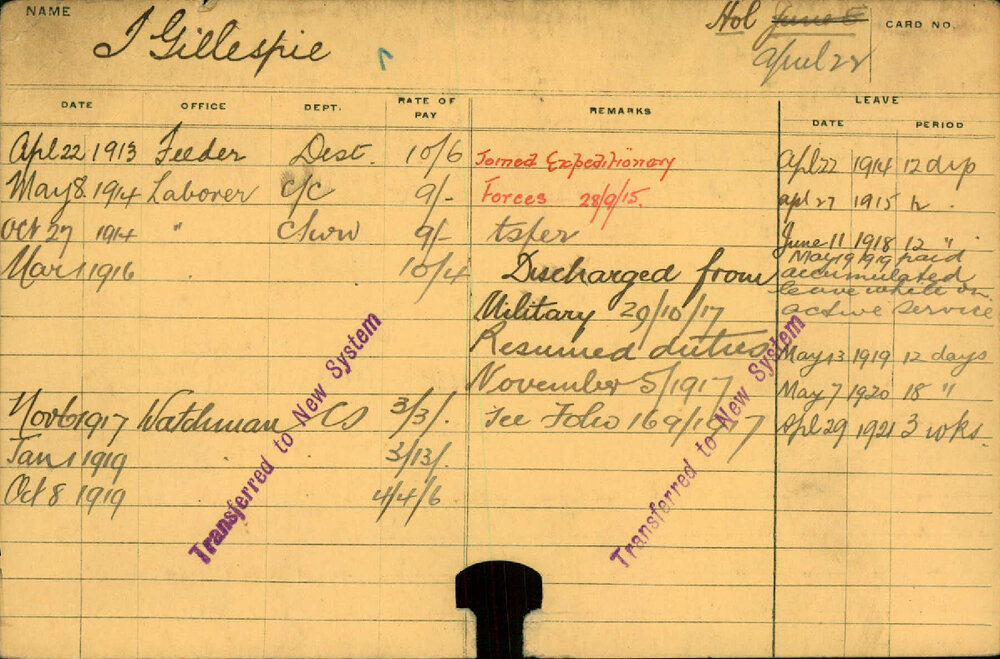 NAME
J Gillespie
Hol June E
April 22
CARD NO.
DATE OFFICE DEPT. RATE OF PAY REMARKS LEAVE
DATE PERIOD
Apl 22 1913 Feeder Dest. 10/6 Joined Expeditionary Apl 22 1914 12 dys
May 8 1914 Laborer C/C 9/- Forces 28/9/15. apl 27 1915 12 "
Oct 27 1914 " 9/- tsfer June 11 1918 12 "
Mar 1 1916 10/4 Discharged from May 19 1919 paid
accumulated
leave while on
Military 29/10/17 active service
Resumed duties May 13 1919 12 days
November 5/1917 May 7 1920 18 "
Nov 6 1917 Watchman CS 3/3/. See Folio 169/1917 Apl 29 1921 3 wks.
Jan 1 1919 3/13/.
Oct 8 1919 4/4/6
Transferred to New System
Transferred to New System